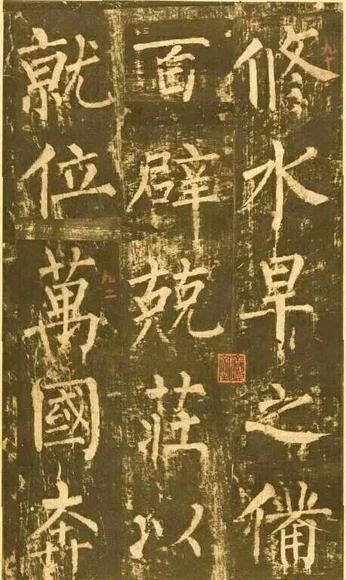 修水旱之備
百辟兢莊以
就位萬國奔
九十
九二